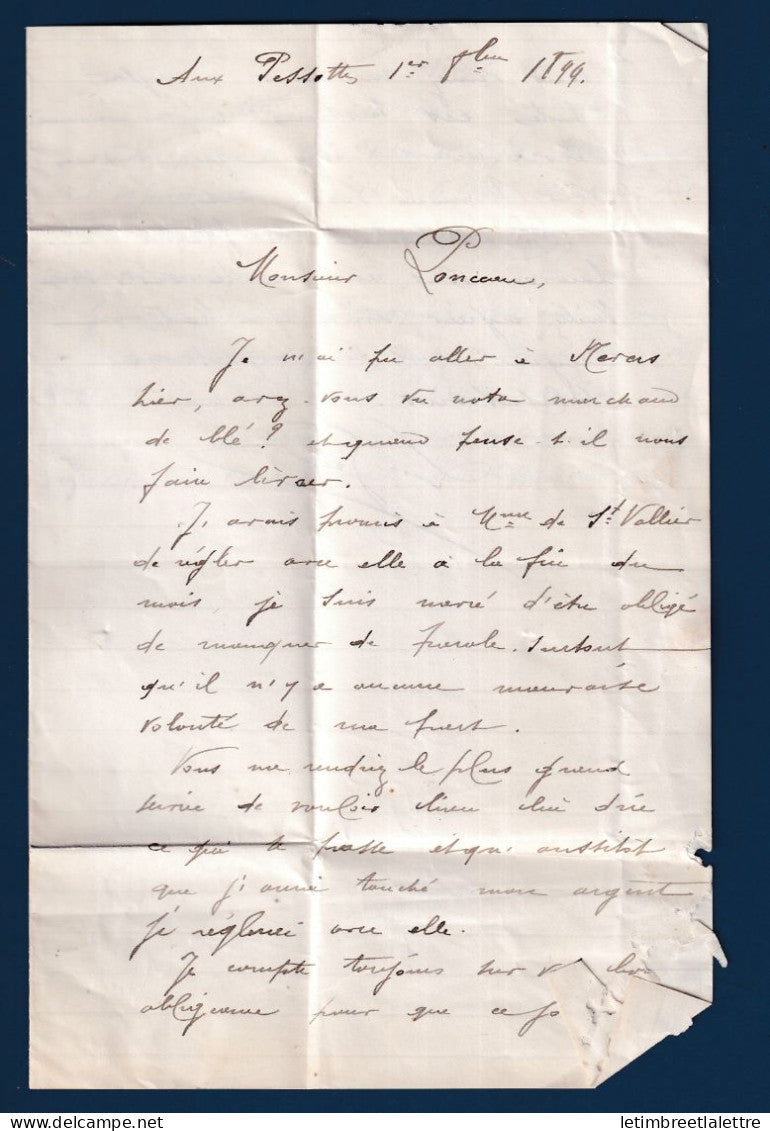 Aux Pessottes 1er 8bre 1899.
Monsieur Ponceau,
Je n'ai pu aller à
hier, avez-vous vu notre marchand
de blé? et quand pense-t-il nous
faire livrer.
J'avais promis à Mme de St Vallier
de régler avec elle à la fin du
mois, je suis navré d'être obligé
de manquer de parole. surtout
qu'il n'y a aucune mauvaise
volonté de ma part.
Vous me rendriez le plus grand
service de vouloir bien lui dire
ce qui se passe et qu'aussitôt
que j'aurai touché mon argent
je réglerai avec elle.
Je compte toujours sur v
obligeance pour que
letimbreetlalettre